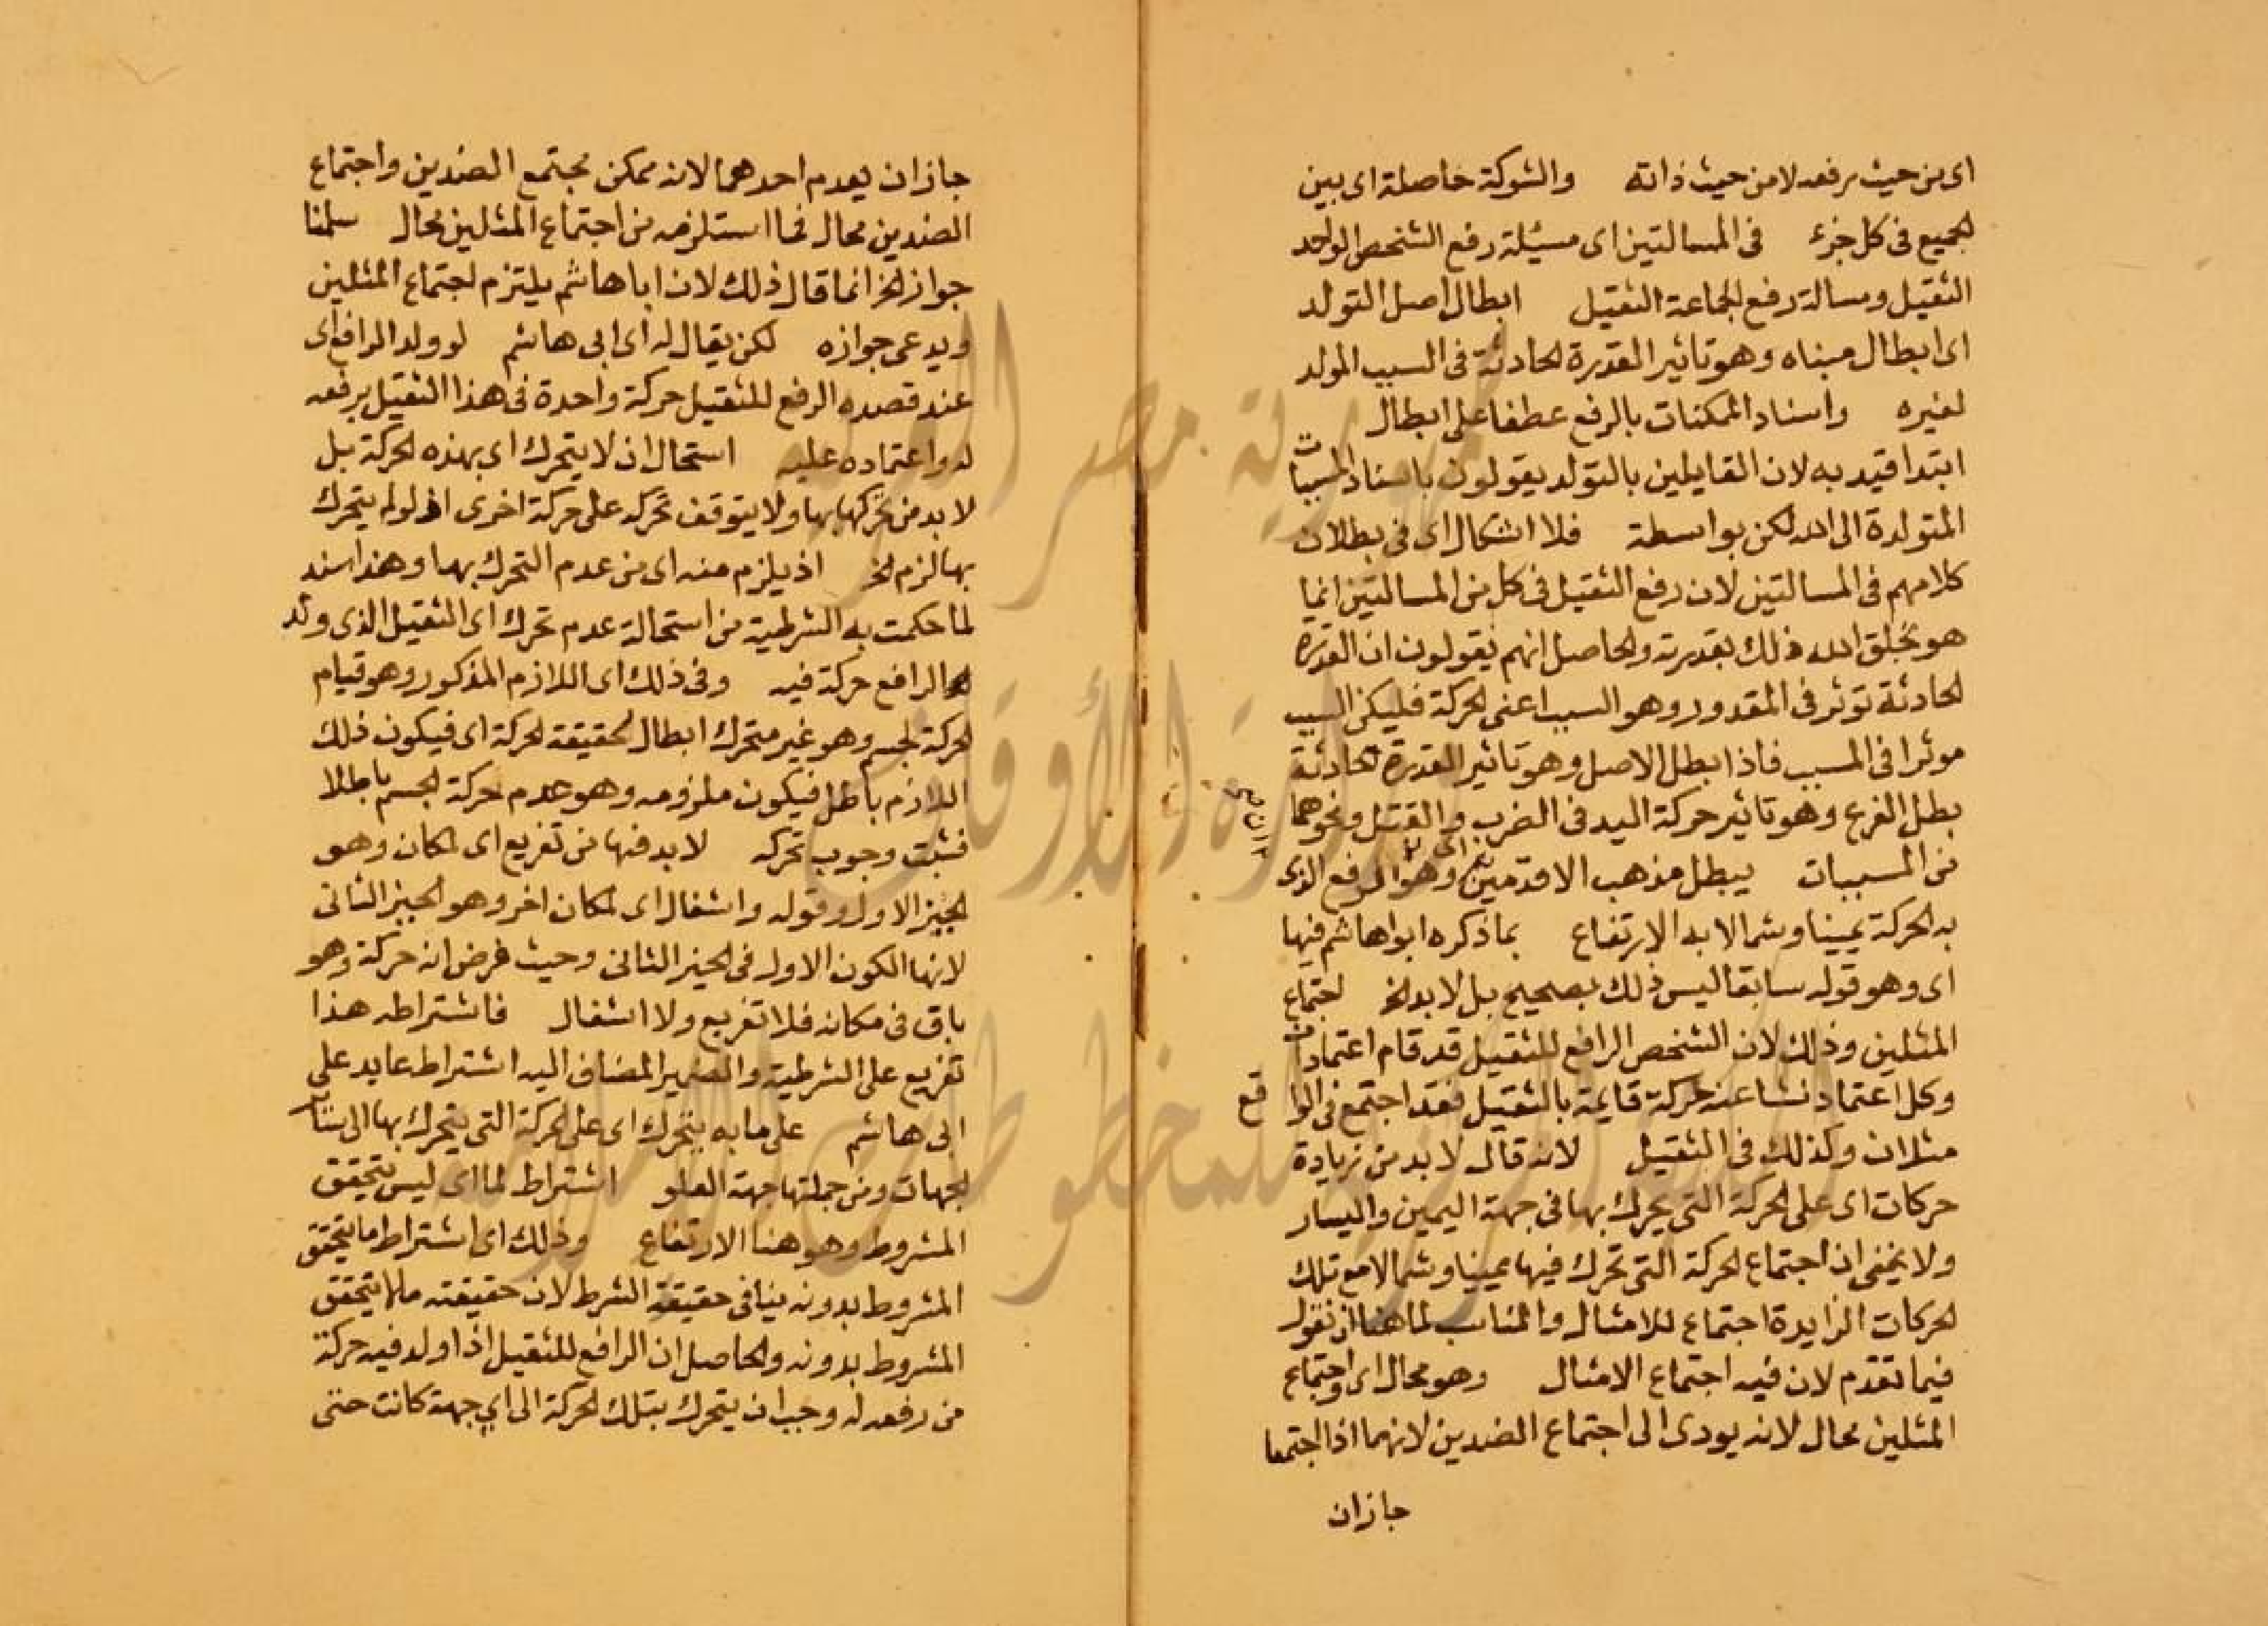 اى من حيث رفعه لا من حيث ذاته والشركة حاصلة اى بين
الجميع فى كل جزء فى المسالتين اى مسئلة رفع الشخص الواحد
الثقيل ومسالة رفع الجماعة الثقيل ابطال اصل التولد
اى ابطال مبناه وهو تاثير القدرة الحادثة فى السبب المولد
لغيره واسناد الممكنات بالرفع عطفا على ابطال
ابتدا قيد به لان القايلين بالتولد يقولون باسناد المسببات
المتولدة الى الله لكن بواسطة فلا اشكال اى فى بطلان
كلامهم فى المسالتين لان رفع الثقيل فى كل من المسالتين انما
هو بخلق الله ذلك بقدرته والحاصل انهم يقولون ان القدرة
الحادثة توثر فى المقدور وهو السبب اعنى الحركة فليكن السبب
موثرا فى المسبب فاذا بطل الاصل وهو تاثير القدرة الحادثة
بطل الفرع وهو تاثير حركة اليد فى الضرب والقتل ونحوهما
من المسببات يبطل مذهب الاقدمين وهو الرفع الذى
به الحركة يمينا وشمالا به الارتفاع بما ذكره ابو اهاشم فيها
اى وهو قوله سابقا ليس ذلك بصحيح بل لا بد الخ اجتماع
المثلين وذلك لان الشخص الرافع للثقيل قد قام اعتمادات
وكل اعتماد نشا عنه حركة قايمة بالثقيل فقد اجتمع فى الواقع
مثلان وكذلك فى الثقيل لانه قال لا بد من زيادة
حركات اى على الحركة التى يحرك بها فى جهة اليمين واليسار
ولا يخفى ان اجتماع الحركة التى تحرك فيها يمينا وشمالا مع تلك
الحركات الزايدة اجتماع للامثال والمناسب لما هنا ان نقول
فيما تقدم لان فيه اجتماع الامثال وهو محال اى واجتماع
المثلين محال لانه يودى الى اجتماع الضدين لانهما اذا اجتمعا
جاز ان
جاز ان يعدم احدهما لانه ممكن فيجتمع الضدين واجتماع
الضدين محال فما استلزمه من اجتماع المثلين محال سلمنا
جواز الخ انما قال ذلك لان ابا هاشم يلتزم اجتماع المثلين
ويدعى جوازه لكن يقال له اى ابى هاشم لو ولد الرافع اى
عند قصده الرفع للثقيل حركة واحدة فى هذا الثقيل برفعه
له واعتماده عليه استحال ان لا يتحرك اى بهذه الحركة بل
لا بد من تحركها بها ولا يتوقف تحركه على حركة اخرى اذ لو لم يتحرك
بها لزم الخ اذ يلزم منه اى من عدم التحرك بها وهذا سند
لما حكمت به الشرطية من استحالة عدم تحرك اى الثقيل الذى ولد
الرافع حركة فيه وفى ذلك اى اللازم المذكور وهو قيام
الحركة لجسم وهو غير متحرك ابطال لحقيقة الحركة اى فيكون ذلك
اللازم باطل فيكون ملزومه وهو عدم حركة الجسم باطلا
فثبت وجوب تحركه لا بد فيها من تفريغ اى لمكان وهو
الحيز الاول وقوله واشغال اى لمكان اخر وهو الحيز الثانى
لانها الكون الاول فى الحيز الثانى وحيث فرض انه حركة وهو
باق فى مكانه فلا تفريغ ولا اشغال فاشتراطه هذا
تفريع على الشرطية والضمير المضاف اليه اشتراط عايد على
ابى هاشم على ما به يتحرك اى على الحركة التى يتحرك بها الى ساير
الجهات ومن جملتها جهة العلو اشتراط لما اى ليس يتحقق
المشروط وهو هنا الارتفاع وذلك اى اشتراط ما يتحقق
المشروط بدونه ينافى حقيقة الشرط لان حقيقته ما لا يتحقق
المشروط بدونه والحاصل ان الرافع للثقيل اذا ولد فيه حركة
من رفعه له وجب ان يتحرك بتلك الحركة الى اى جهة كانت حتى